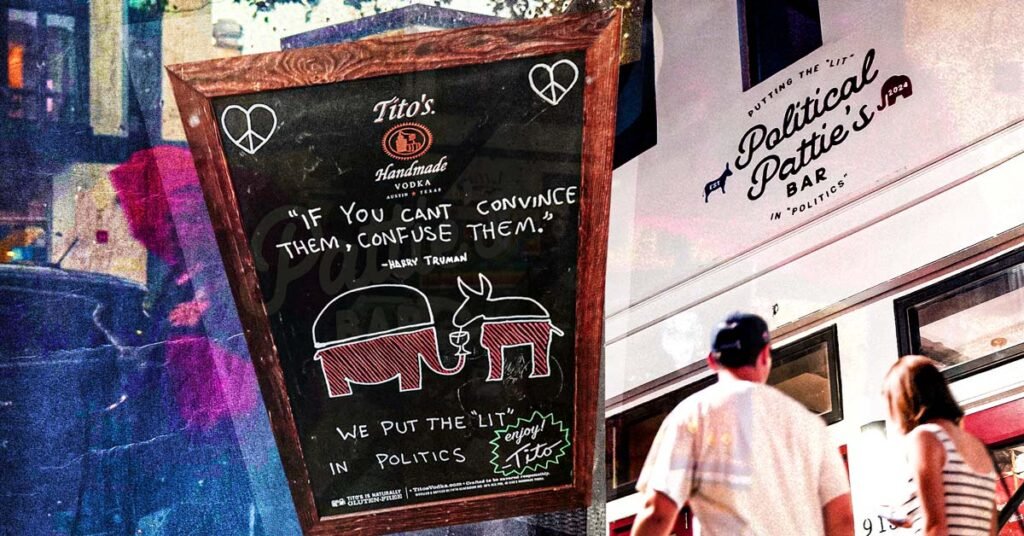 Tito's.
Handmade
VODKA
AUSTIN ★ TEXAS
"IF YOU CANT CONVINCE
THEM, CONFUSE THEM."
-HARRY TRUMAN
WE PUT THE "LIT"
IN POLITICS
enjoy!
-Tito
TITO'S IS NATURALLY
GLUTEN-FREE
• TitosVodka.com • Crafted to be savored responsibly
PUTTING THE "LIT"
Political
Pattie's
BAR
IN "POLITICS"
EST.
2024